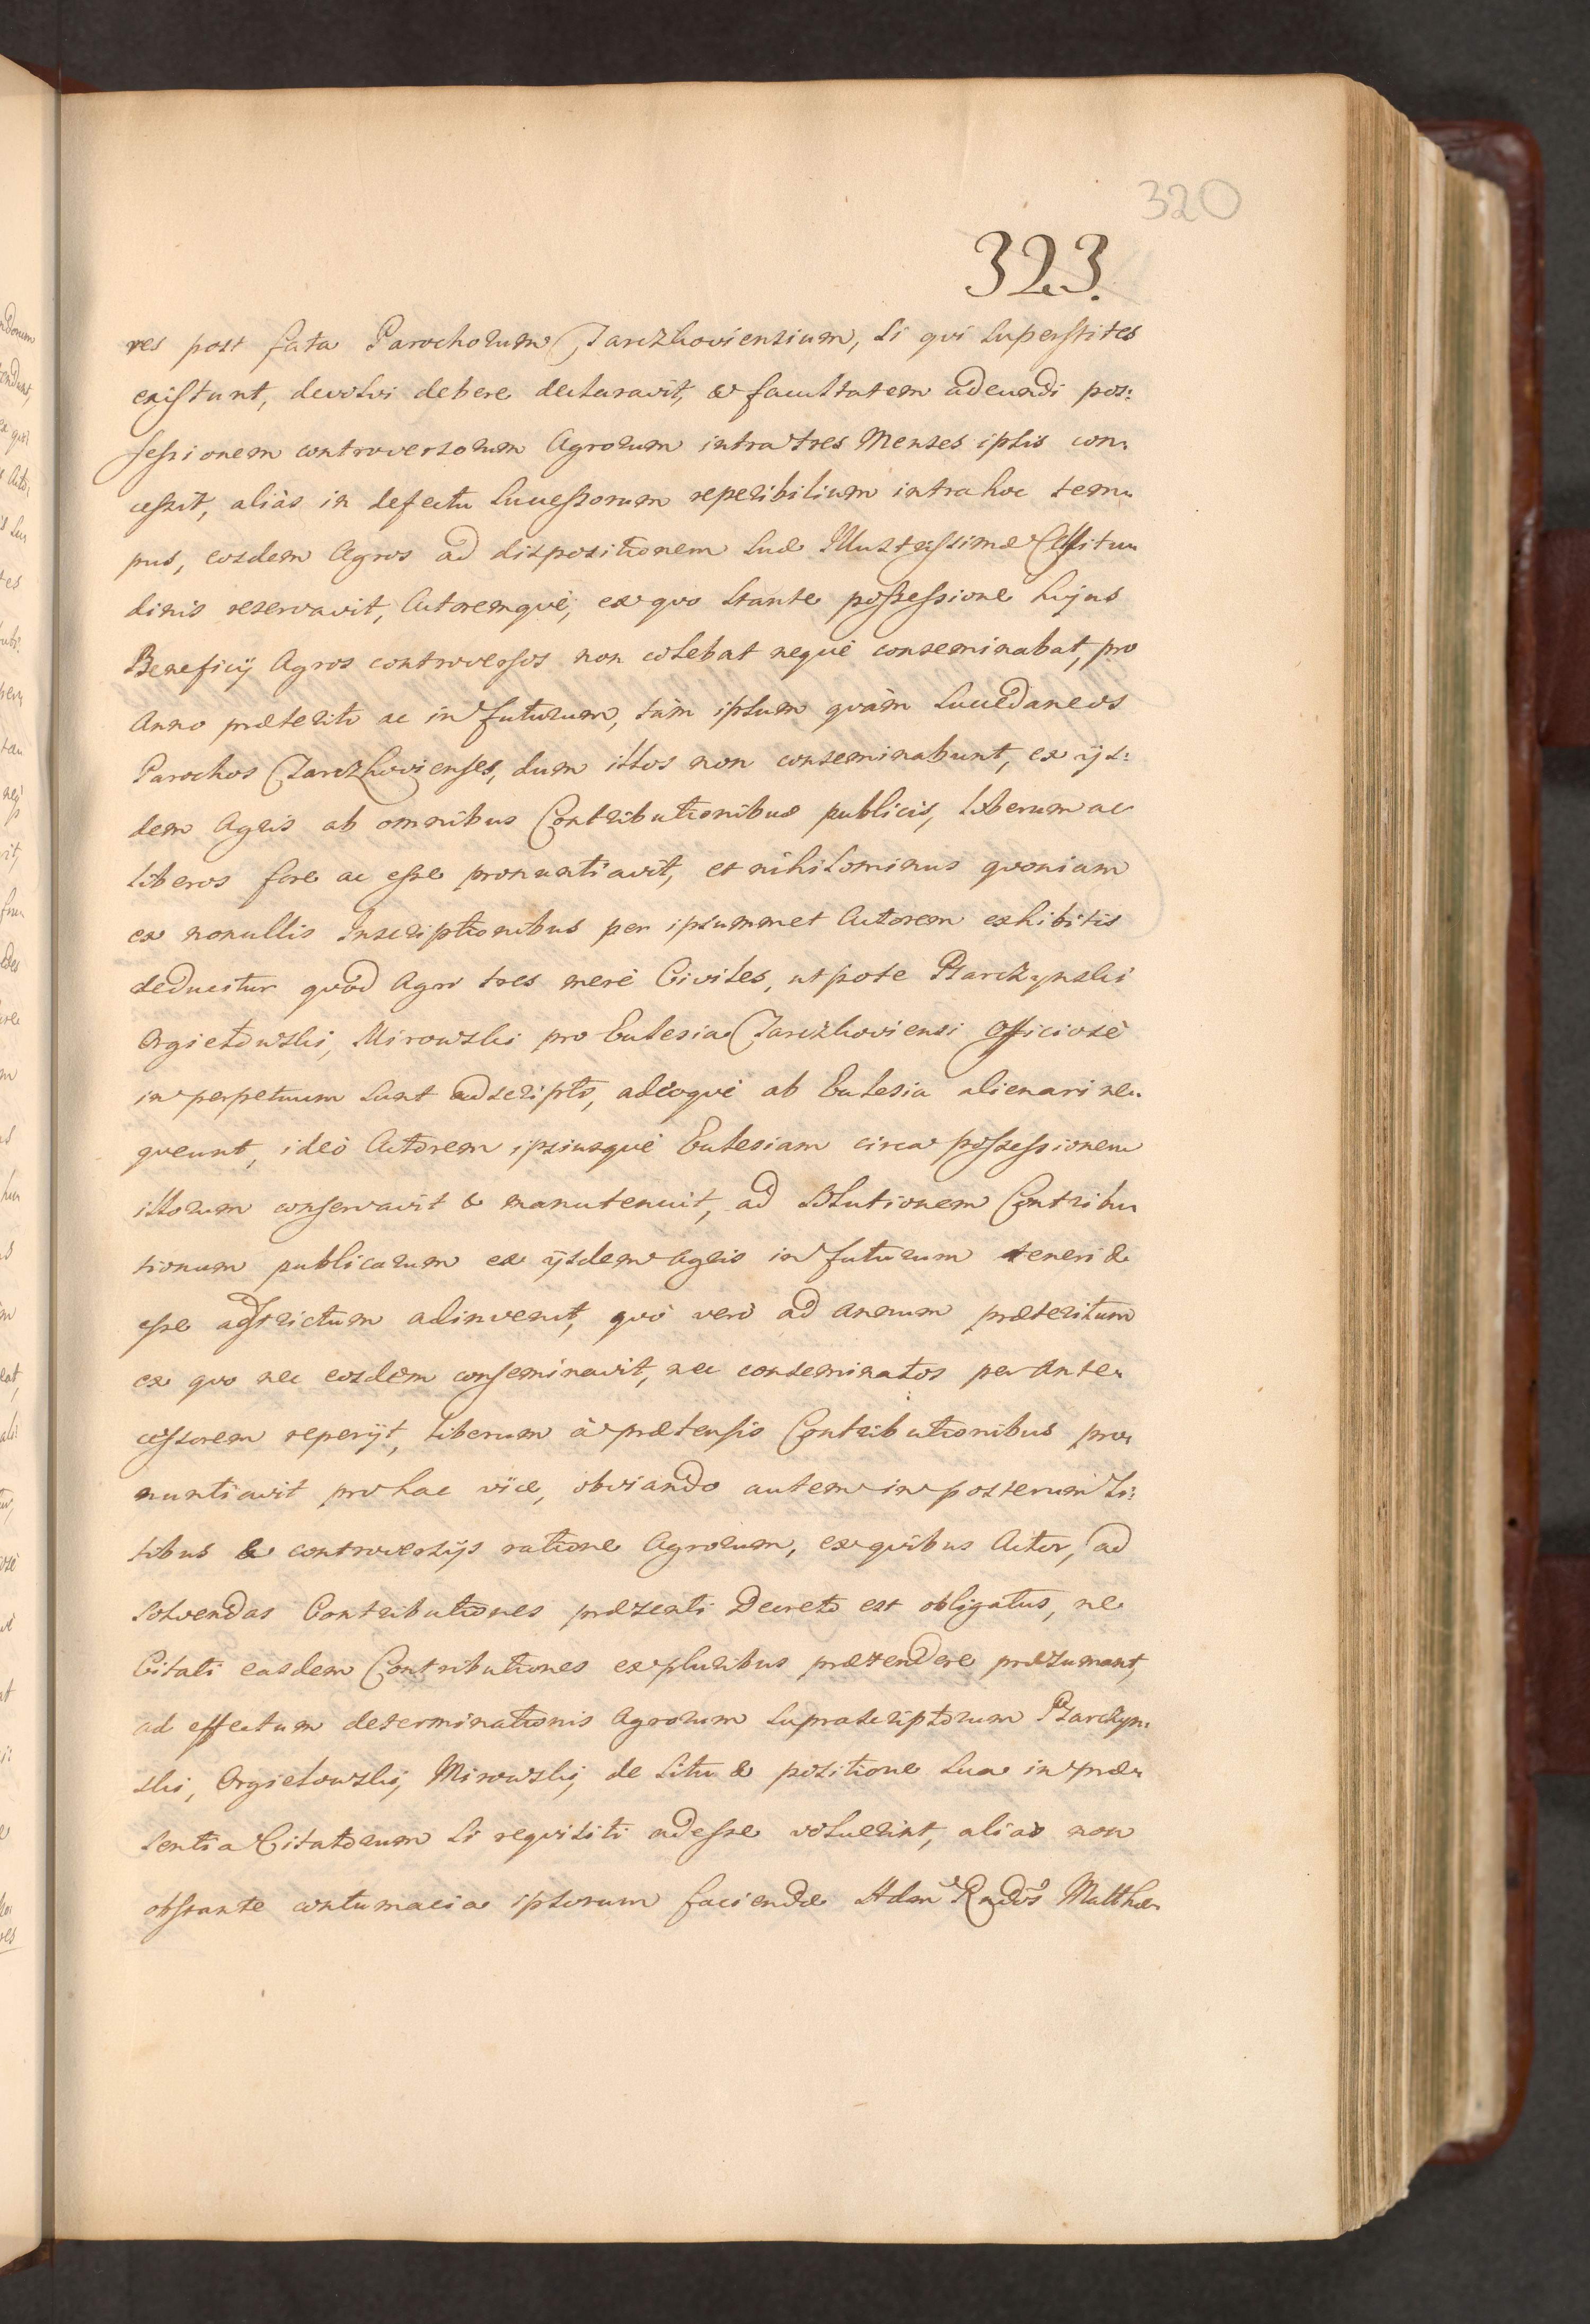 320
323.
res post fata Parochorum Czarzkoviensium, si qui superstites
existunt, devolvi debere declaravit, & facultatem adeundi pos:
sessionem controversorum Agrorum intra tres Menses ipsis con„
cessit, aliàs in defectu Successorum reperibilium intra hoc tem„
pus, eosdem Agros ad dispositionem suæ Illustrissimæ Celsitu„
dinis reservavit, Actoremquè, ex quo stante possessione hujus
Beneficij Agros controversos non colebat nequè conseminabat, pro
Anno præterito ac in futurum, tàm ipsum quàm succedaneos
Parochos Czarzkovienses, dum illos non conseminabunt, ex ijs:
dem Agris ab omnibus Contributionibus publicis, liberum ac
liberos fore ac esse pronuntiavit, et nihilominus quoniam
ex nonullis Inscriptionibus per ipsummet Actorem exhibitis
deducitur quòd Agri tres merè Civiles, utpote Psarczynski
Orgielowski, Mirowski pro Eclesia Czarzkoviensi Officiosè
in perpetuum sunt adscripti, adeoquè ab Eclesia alienari ne„
queunt, ideò Actorem ipsiusquè Eclesiam circa possessionem
illorum conservavit & manutenuit, ad solutionem Contribu„
tionum publicarum ex ijsdem Agris in futurum teneri &
esse adstrictum adinvenit, quò verò ad annum præteritum
ex quo nec eosdem conseminavit, nec conseminatos per Ante„
cessorem reperijt, liberum à prætensis Contributionibus pro„
nuntiavit pro hac vice, obviando autem in posterum li:
tibus & controversijs ratione Agrorum, ex quibus Actor, ad
solvendas Contributiones præsenti Decreto est obligatus, ne
Citati easdem Contributiones ex pluribus prætendere præsumant,
ad effectum determinationis Agrorum suprascriptorum Psarczyn„
ski, Orgielowskij, Mirowskij, de situ & positione sua in præ„
sentia Citatorum si requisiti adesse voluerint, alias non
obstante contumacia ipsorum faciendæ Adm Rndūs Matthæ„